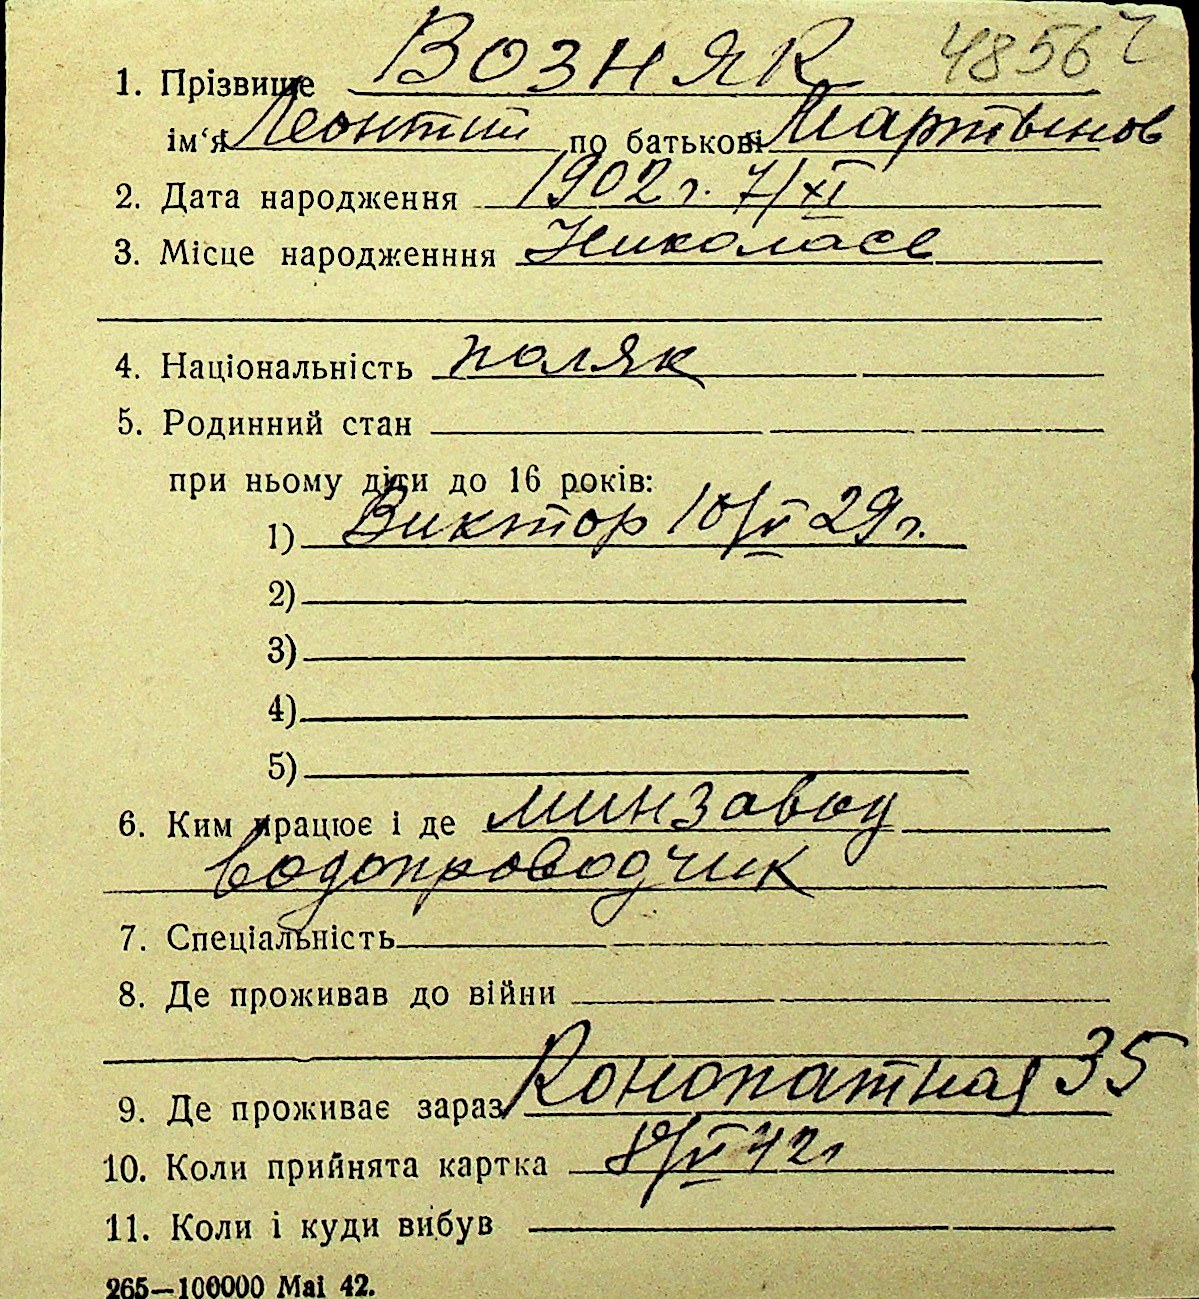 48567
1. Прізвище ВОЗНЯК
ім'я Леонтий по батькові Мартынов
2. Дата народження 1902 г. 7/XI
3. Місце народженння Николаев
4. Національність поляк
5. Родинний стан
при ньому діти до 16 років:
1) Виктор 10/V 29 г.
2)
3)
4)
5)
6. Ким працює і де минзавод
водопроводчик
7. Спеціальність
8. Де проживав до війни
9. Де проживає зараз Конопатная 35
10. Коли прийнята картка 8/VI 42 г
11. Коли і куди вибув
265—100000 Mai 42.